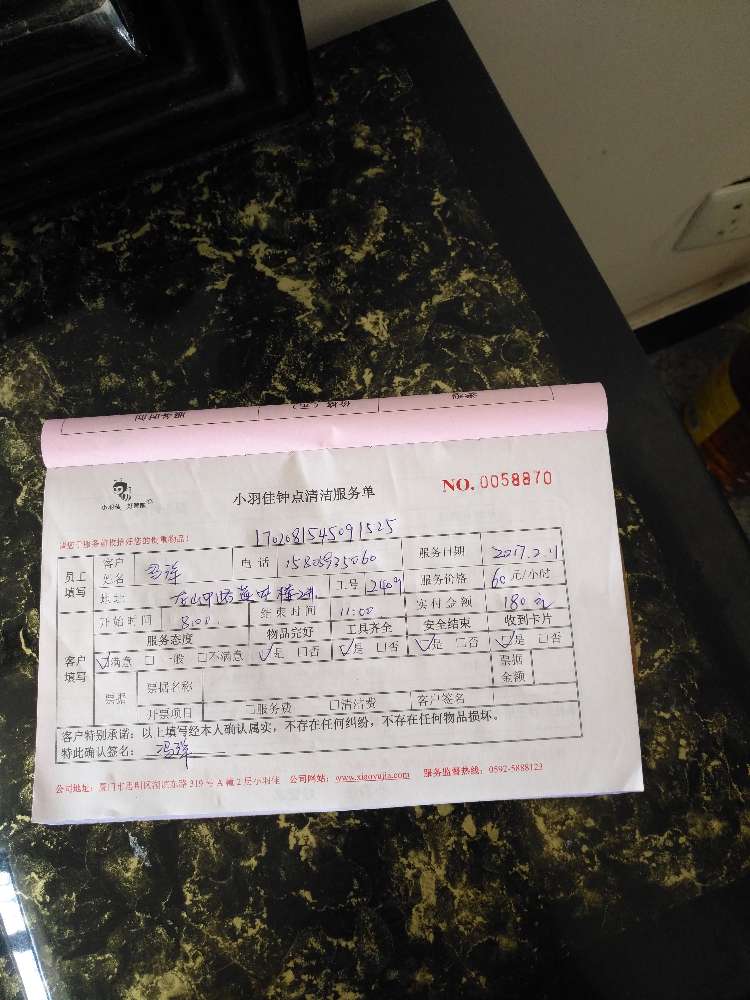 小羽佳 好管家
小羽佳钟点清洁服务单
NO. 0058870
请您于服务前收拾好您的贵重物品!
1702081545091525
员工填写 客户姓名 电话 服务日期 2017.2.11
地址 工号 2409 服务价格 60元/小时
开始时间 8:00 结束时间 11:00 实付金额 180元
客户填写 服务态度 物品完好 工具齐全 安全结束 收到卡片
☑满意 □一般 □不满意 ☑是 □否 ☑是 □否 ☑是 □否 ☑是 □否
票据 票据名称 票据金额
开票项目 □服务费 □清洁费 客户签名
客户特别承诺:以上填写经本人确认属实,不存在任何纠纷,不存在任何物品损坏。
特此确认签名:
公司地址:厦门市思明区湖滨东路319号A幢2层小羽佳 公司网站:www.xiaoyujia.com 服务监督热线:0592-5888123